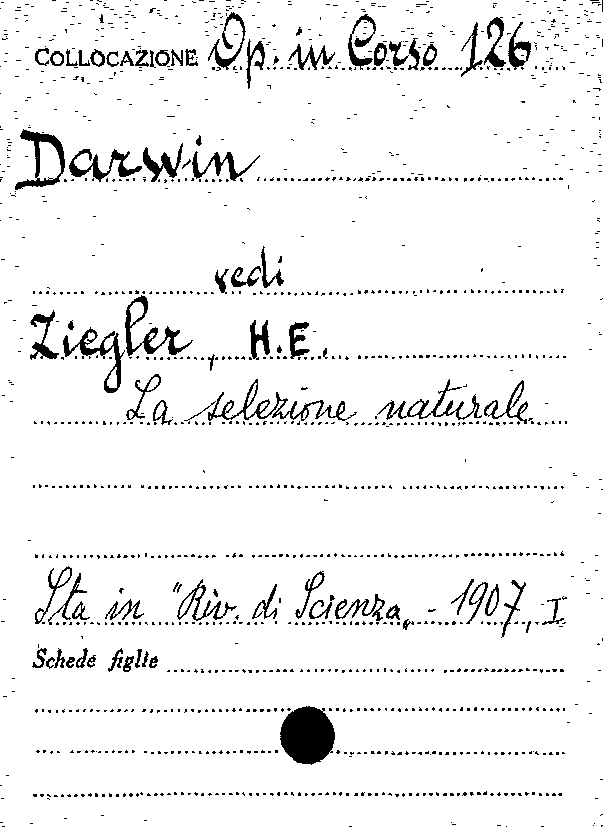 COLLOCAZIONE Op. in Corso 126
Darwin
vedi
Ziegler, H.E.
La selezione naturale
Sta in "Riv. di Scienza„ - 1907, I
Schede figlie